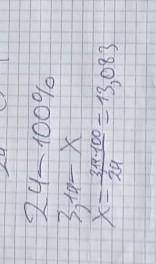 24
24 – 100%
3,14 – X
X = 3,14·100/24 = 13,083